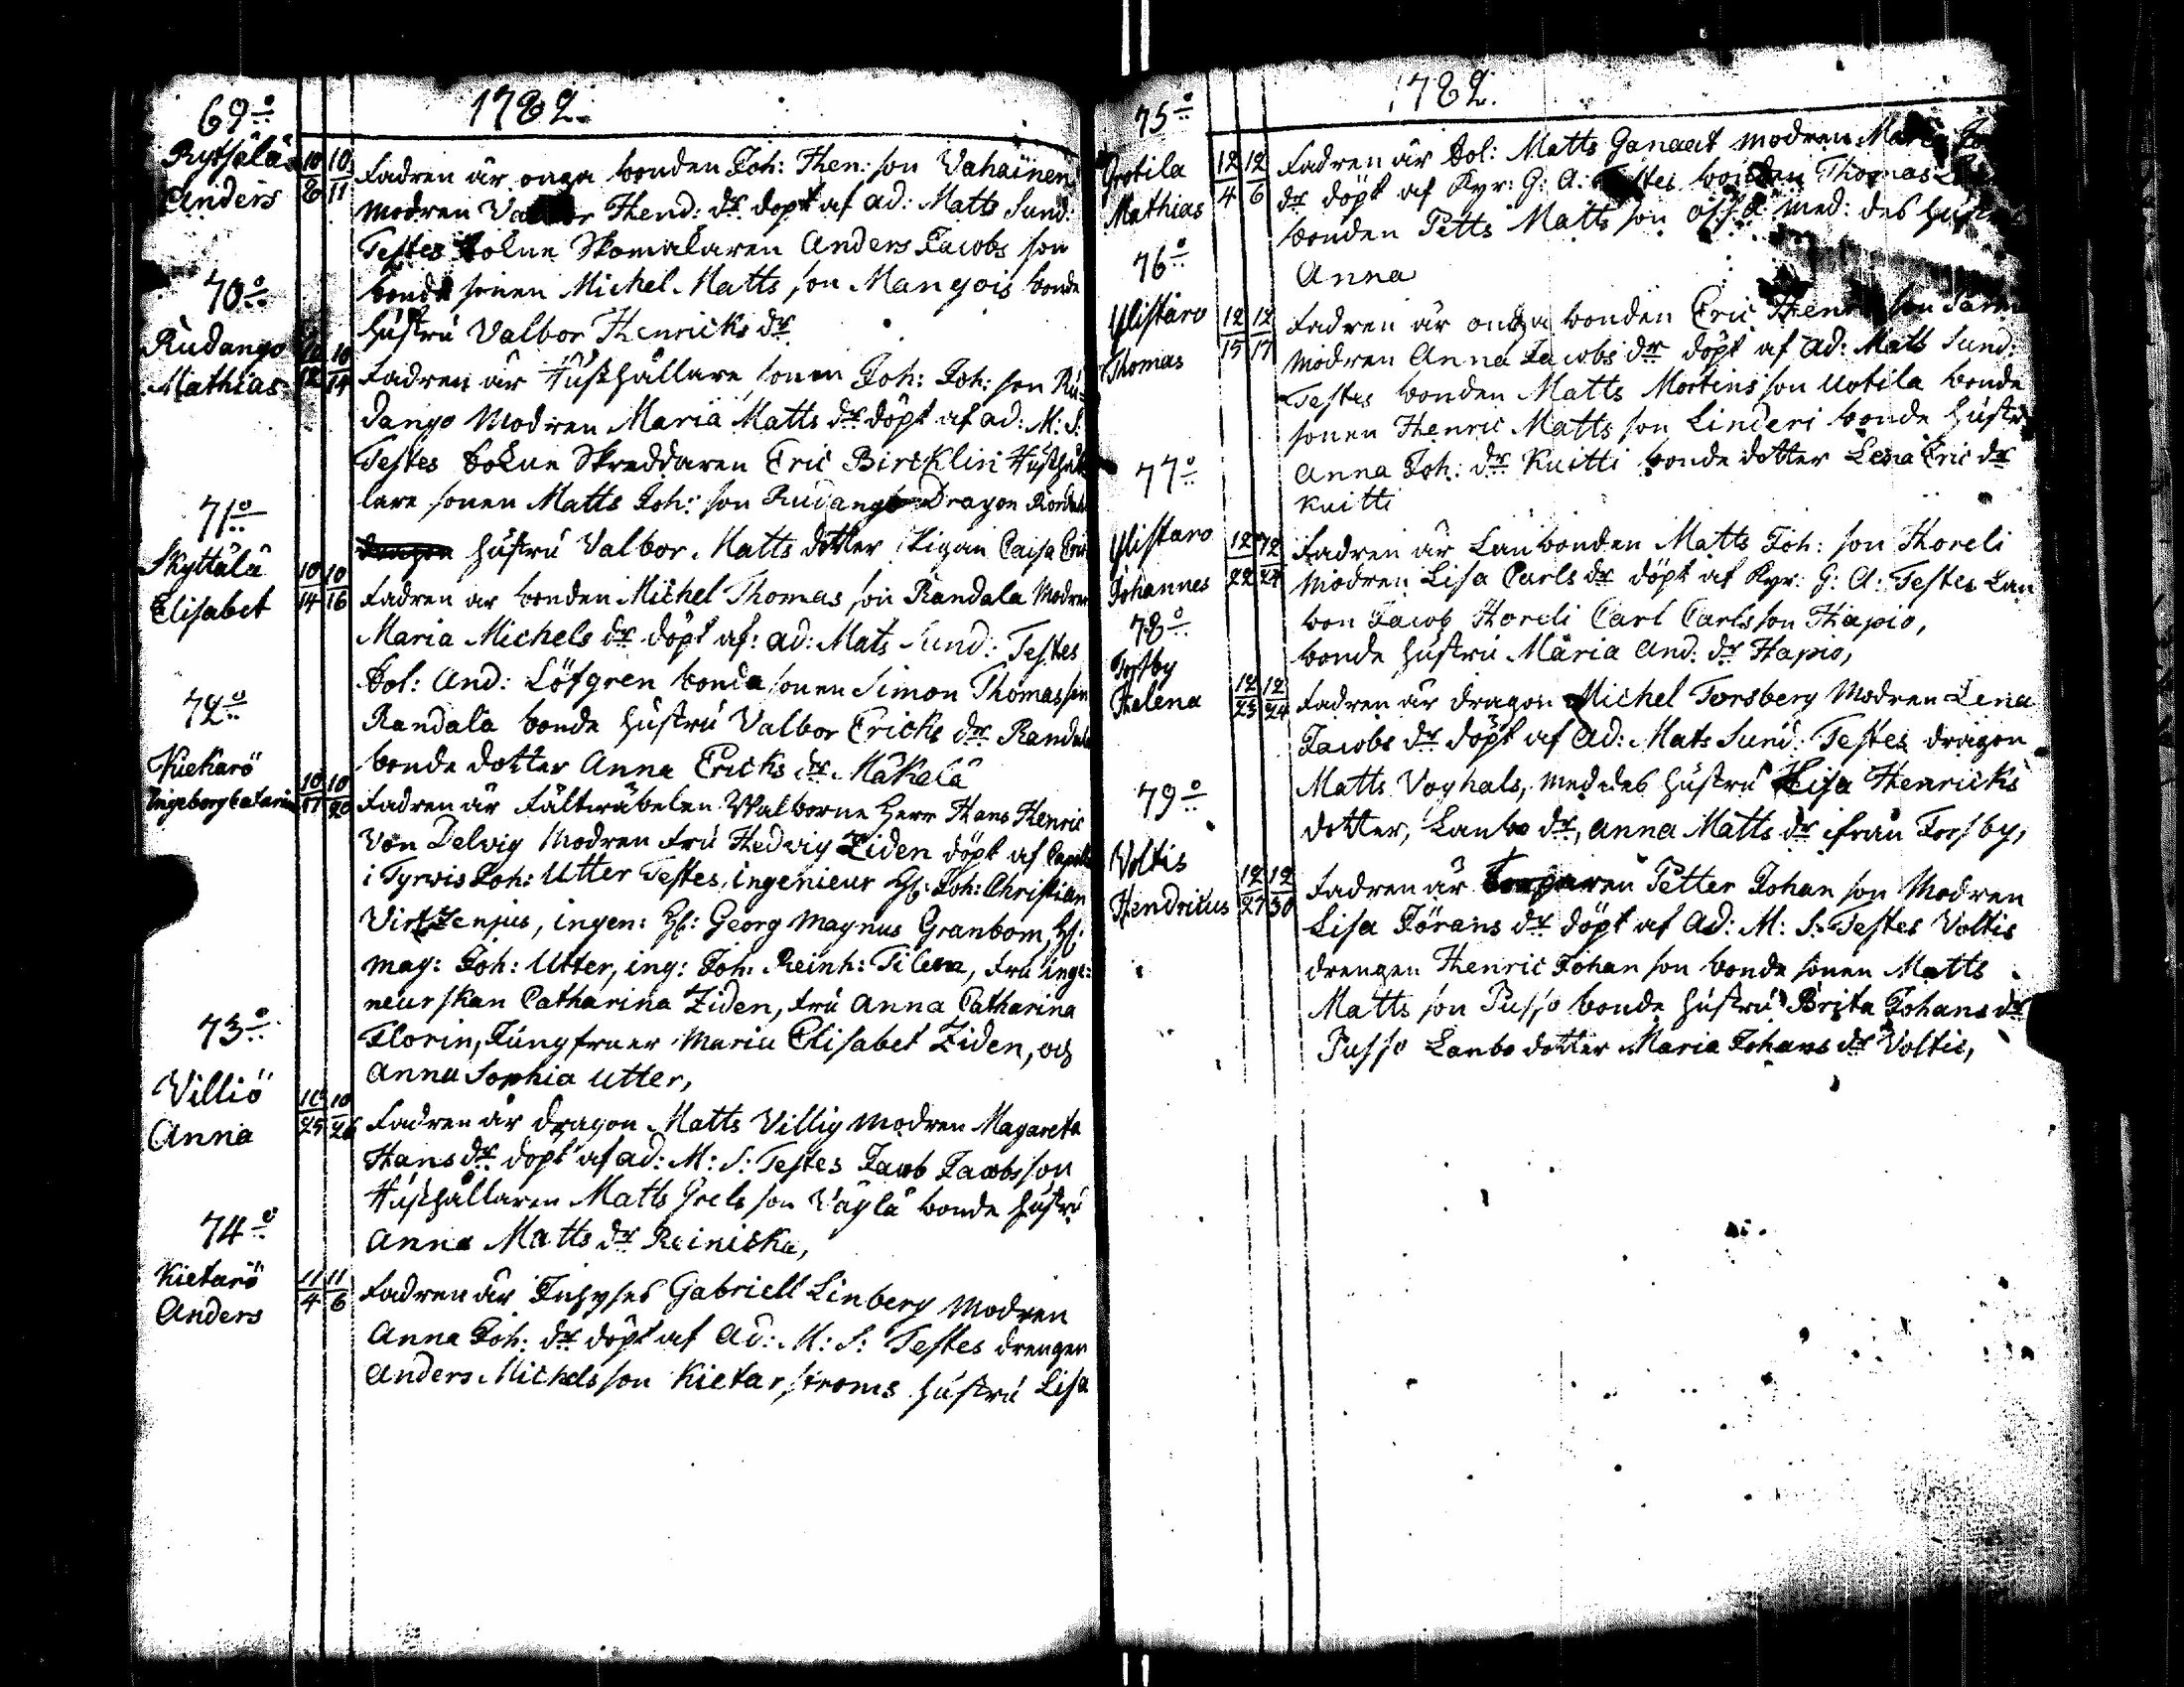 1782.
69o
Rytsälä
Anders
10 10
8 11
Fadren är unga bonden Joh: Hen: son Vahainen
Modren Hend: dr döpt af ad: Matts Sund:
Testes Sokne Skomakaren Anders Jacobs son
bonde sonen Michel Matts son Mangois bonde
hustru Valbor Henricks dr
70o
Rudango
Mathias
10 10
12 14
Fadren är Hushållare sonen Joh: Joh: son Ru-
dango Modren Maria Matts dr döpt af ad: M: S.
Testes Sokne Skreddaren Eric Bircklin Hushål
lare sonen Matts Joh: son Rudango Dragon
hustru Valbor Matts dotter Pigan Caisa Eric
71o
Skyttälä
Elisabet
10 10
14 16
Fadren är bonden Michel Thomas son Randala Modren
Maria Michels dr döpt af: ad: Mats Sund: Testes
Sol: And: Löfgren bonde sonen Simon Thomas son
Randala bonde hustru Valbor Ericks dr Randala
bonde dotter Anna Ericks dr Mäkelä
72o
Kiekarö
Ingeborg Catarina
10 10
17 20
Fadren är Fältwäbelen Walborne Herr Hans Henric
Von Delvig Modren Fru Hedvig Ziden döpt af Capell:
i Tyrvis Joh: Utter Testes, ingenieur Hr: Joh: Christian
Virtzenius, ingen: Hr: Georg Magnus Granbom, Hr:
mag: Joh: Utter, ing: Joh: Reinh: Tilena, Fru inge:
neurskan Catharina Ziden, Fru Anna Catharina
Florin, Jungfruer Maria Elisabet Ziden, och
Anna Sophia Utter,
73o
Villiö
Anna
10 10
25 26
Fadren är dragon Matts Villig Modren Magareta
Hans dr döpt af ad: M: S: Testes Jacob Jacobs son
Hushållaren Matts Grels son Väylä bonde hustru
Anna Matts dr Reiniska,
74o
Kietarö
Anders
11 11
4 6
Fadren är Inhyses Gabriell Linberg Modren
Anna Joh: dr döpt af Ad: M: S: Testes drengen
Anders Michels son Kietar, ströms hustru Lisa
1782.
75o
Grotila
Mathias
12 12
4 6
Fadren är Sol: Matts Ganaat Modren Maria
dr döpt af Kyr: G: A: Testes bonden Thomas
bonden Petts Matts son med: des hustru
Anna
76o
Ylistaro
Thomas
12 12
15 17
Fadren är unga bonden Eric Henr son
Modren Anna Jacobs dr döpt af ad: Matts Sund:
Testes bonden Matts Mortins son Uotila bonde
sonen Henric Matts son Linderi bonde hustr
Anna Joh: dr Kuitti bonde dotter Lena Eric dr
Kuitti
77o
Ylistaro
Johannes
12 12
22 24
Fadren är Lanbonden Matts Joh: son Horeli
Modren Lisa Carls dr döpt af Kyr: G: A: Testes Lan
bon Jacob Horeli Carl Carls son Hapio,
bonde hustru Maria And: dr Hapio,
78o
Torsby
Helena
12 12
23 24
Fadren är dragon Michel Torsberg Modren Lena
Jacobs dr döpt af Ad: Mats Sund: Testes dragon
Matts Voghals, med des hustru Lisa Henricks
dotter, Lanbo dr, Anna Matts dr ifrån Torsby,
79o
Voltis
Hendricus
12 12
27 30
Fadren är Petter Johan son Modren
Lisa Jörans dr döpt af Ad: M: S: Testes Voltis
drengen Henric Johan son bonde sonen Matts
Matts son Pusso bonde hustru Brita Johans dr
Pusso Lanbo dotter Maria Johans dr Voltis,